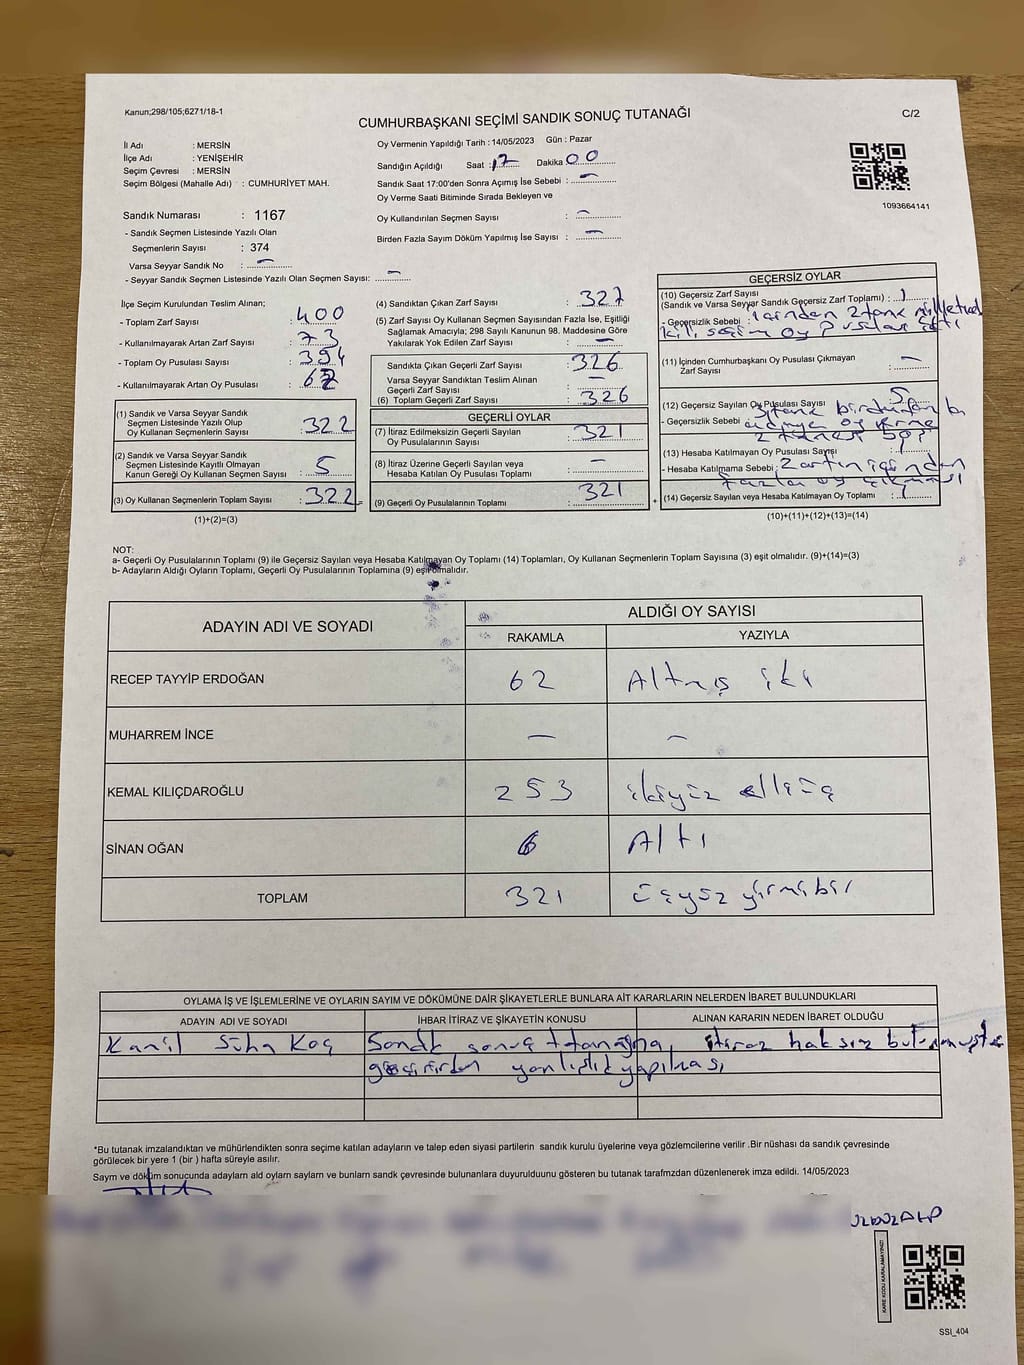 Kanun;298/105;6271/18-1
CUMHURBAŞKANI SEÇİMİ SANDIK SONUÇ TUTANAĞI
C/2
İl Adı : MERSİN
İlçe Adı : YENİŞEHİR
Seçim Çevresi : MERSİN
Seçim Bölgesi (Mahalle Adı) : CUMHURİYET MAH.
Oy Vermenin Yapıldığı Tarih : 14/05/2023 Gün : Pazar
Sandığın Açıldığı Saat : 17 Dakika 00
Sandık Saat 17:00'den Sonra Açımış İse Sebebi : —
Oy Verme Saati Bitiminde Sırada Bekleyen ve
Oy Kullandırılan Seçmen Sayısı : —
Birden Fazla Sayım Döküm Yapılmış İse Sayısı : —
1093664141
Sandık Numarası : 1167
- Sandık Seçmen Listesinde Yazılı Olan
Seçmenlerin Sayısı : 374
Varsa Seyyar Sandık No : —
- Seyyar Sandık Seçmen Listesinde Yazılı Olan Seçmen Sayısı: —
İlçe Seçim Kurulundan Teslim Alınan;
- Toplam Zarf Sayısı : 400
- Kullanılmayarak Artan Zarf Sayısı : 73
- Toplam Oy Pusulası Sayısı : 394
- Kullanılmayarak Artan Oy Pusulası :
(1) Sandık ve Varsa Seyyar Sandık
Seçmen Listesinde Yazılı Olup
Oy Kullanan Seçmenlerin Sayısı : 322
(2) Sandık ve Varsa Seyyar Sandık
Seçmen Listesinde Kayıtlı Olmayan
Kanun Gereği Oy Kullanan Seçmen Sayısı : 5
(3) Oy Kullanan Seçmenlerin Toplam Sayısı : 322 =
(1)+(2)=(3)
(4) Sandıktan Çıkan Zarf Sayısı : 327
(5) Zarf Sayısı Oy Kullanan Seçmen Sayısından Fazla İse, Eşitliği
Sağlamak Amacıyla; 298 Sayılı Kanunun 98. Maddesine Göre
Yakılarak Yok Edilen Zarf Sayısı : —
Sandıkta Çıkan Geçerli Zarf Sayısı : 326
Varsa Seyyar Sandıktan Teslim Alınan
Geçerli Zarf Sayısı : —
(6) Toplam Geçerli Zarf Sayısı : 326
GEÇERLİ OYLAR
(7) İtiraz Edilmeksizin Geçerli Sayılan
Oy Pusulalarının Sayısı : 321
(8) İtiraz Üzerine Geçerli Sayılan veya
Hesaba Katılan Oy Pusulası Toplamı : —
(9) Geçerli Oy Pusulalarının Toplamı : 321 +
GEÇERSİZ OYLAR
(10) Geçersiz Zarf Sayısı
(Sandık ve Varsa Seyyar Sandık Geçersiz Zarf Toplamı) : 1
- Geçersizlik Sebebi : içinden 2 tane milletvekili seçim oy pusulası çıktı
(11) İçinden Cumhurbaşkanı Oy Pusulası Çıkmayan
Zarf Sayısı : —
(12) Geçersiz Sayılan Oy Pusulası Sayısı : 5
- Geçersizlik Sebebi 3 tane birden
adaya oy verme
2 tanesi boş
(13) Hesaba Katılmayan Oy Pusulası Sayısı :
- Hesaba Katılmama Sebebi :
fazla oy çıkması
(14) Geçersiz Sayılan veya Hesaba Katılmayan Oy Toplamı :
(10)+(11)+(12)+(13)=(14)
NOT:
a- Geçerli Oy Pusulalarının Toplamı (9) ile Geçersiz Sayılan veya Hesaba Katılmayan Oy Toplamı (14) Toplamları, Oy Kullanan Seçmenlerin Toplam Sayısına (3) eşit olmalıdır. (9)+(14)=(3)
b- Adayların Aldığı Oyların Toplamı, Geçerli Oy Pusulalarının Toplamına (9) eşit olmalıdır.
ADAYIN ADI VE SOYADI
ALDIĞI OY SAYISI
RAKAMLA YAZIYLA
RECEP TAYYİP ERDOĞAN 62 Altmış iki
MUHARREM İNCE — —
KEMAL KILIÇDAROĞLU 253 ikiyüz elliüç
SİNAN OĞAN 6 Altı
TOPLAM 321 üçyüz yirmibir
OYLAMA İŞ VE İŞLEMLERİNE VE OYLARIN SAYIM VE DÖKÜMÜNE DAİR ŞİKAYETLERLE BUNLARA AİT KARARLARIN NELERDEN İBARET BULUNDUKLARI
ADAYIN ADI VE SOYADI İHBAR İTİRAZ VE ŞİKAYETİN KONUSU ALINAN KARARIN NEDEN İBARET OLDUĞU
Süha Koç Sandık sonuç tutanağına, itiraz haksız bulunmuştur
yanlışlık yapılması
*Bu tutanak imzalandıktan ve mühürlendikten sonra seçime katılan adayların ve talep eden siyasi partilerin sandık kurulu üyelerine veya gözlemcilerine verilir .Bir nüshası da sandık çevresinde
görülecek bir yere 1 (bir ) hafta süreyle asılır.
Sayım ve döküm sonucunda adayların ald oyların sayların ve bunların sandk çevresinde bulunanlara duyurulduunu gösteren bu tutanak tarafmzdan düzenlenerek imza edildi. 14/05/2023
KARE KODU KARALAMAYINIZ!
SSI_404